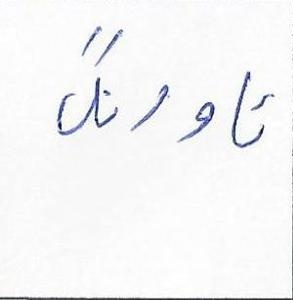 تاورنگ